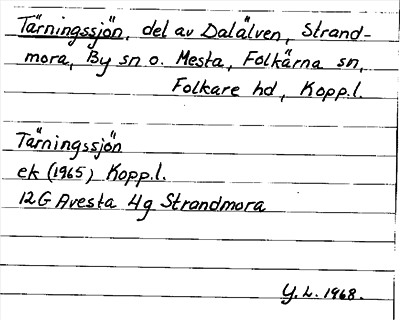 Tärningssjön, del av Dalälven, Strand-
mora, By sn o. Mesta, Folkärna sn,
Folkare hd, Kopp.l.
Tärningssjön
ek (1965) Kopp.l.
12G Avesta 4g Strandmora
Y.L. 1968.